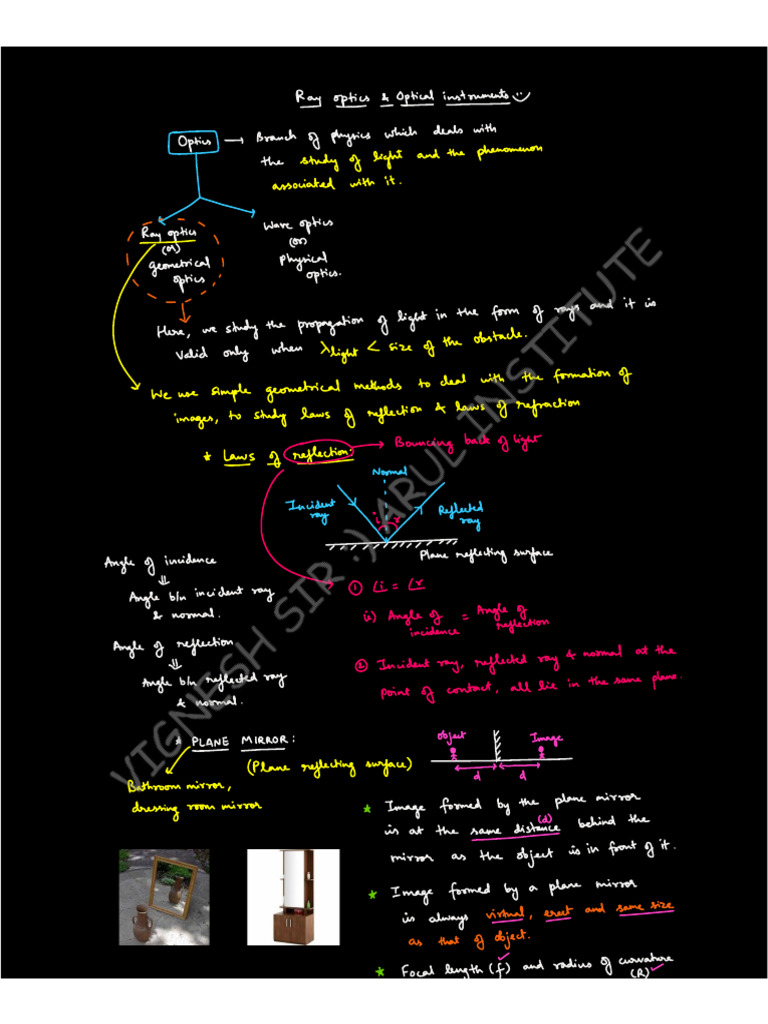 Ray optics & Optical instruments
Optics → Branch of physics which deals with
the study of light and the phenomenon
associated with it.
Ray optics
(or)
geometrical
optics
Wave optics
(or)
Physical
optics.
Here, we study the propagation of light in the form of rays and it is
valid only when λlight < size of the obstacle.
We use simple geometrical methods to deal with the formation of
images, to study laws of reflection & laws of refraction
* Laws of reflection: → Bouncing back of light
Normal
Incident
ray
i r
Reflected
ray
Plane reflecting surface
Angle of incidence
⇓
Angle b/n incident ray
& normal.
Angle of reflection
⇓
Angle b/n reflected ray
& normal.
① ∠i = ∠r
(i) Angle of incidence = Angle of reflection
② Incident ray, reflected ray & normal at the
point of contact, all lie in the same plane.
* PLANE MIRROR:
(Plane reflecting surface)
Bathroom mirror,
dressing room mirror
Object Image
d d
* Image formed by the plane mirror
is at the same distance (d) behind the
mirror as the object is in front of it.
* Image formed by a plane mirror
is always virtual, erect and same size
as that of object.
* Focal length (f) and radius of curvature
(R)
VIGNESH SIR :) ARUL INSTITUTE